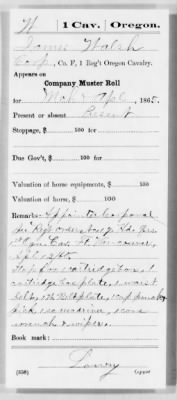 W | 1 Cav. | Oregon.
James Walsh
Corp., Co. F, 1 Reg't Oregon Cavalry.
Appears on
Company Muster Roll
for Mch & Apl, 1865.
Present or absent Present
Stoppage, $ 100 for
Due Gov't, $ 100
Valuation of horse equipments, $ 100
Valuation of horse, $ 100
Remarks: Appointed Corporal
per Regt order No
1" Ogn Cav Ft Vancouver
Apl
Stop for 1 cartridge box, 1
cartridge box plate, 1 waist
belt, & plate, 1 cap pouch &
pick, 1 screwdriver, 1 cone
wrench & wiper.
Book mark:
Lowry
(358) Copyist